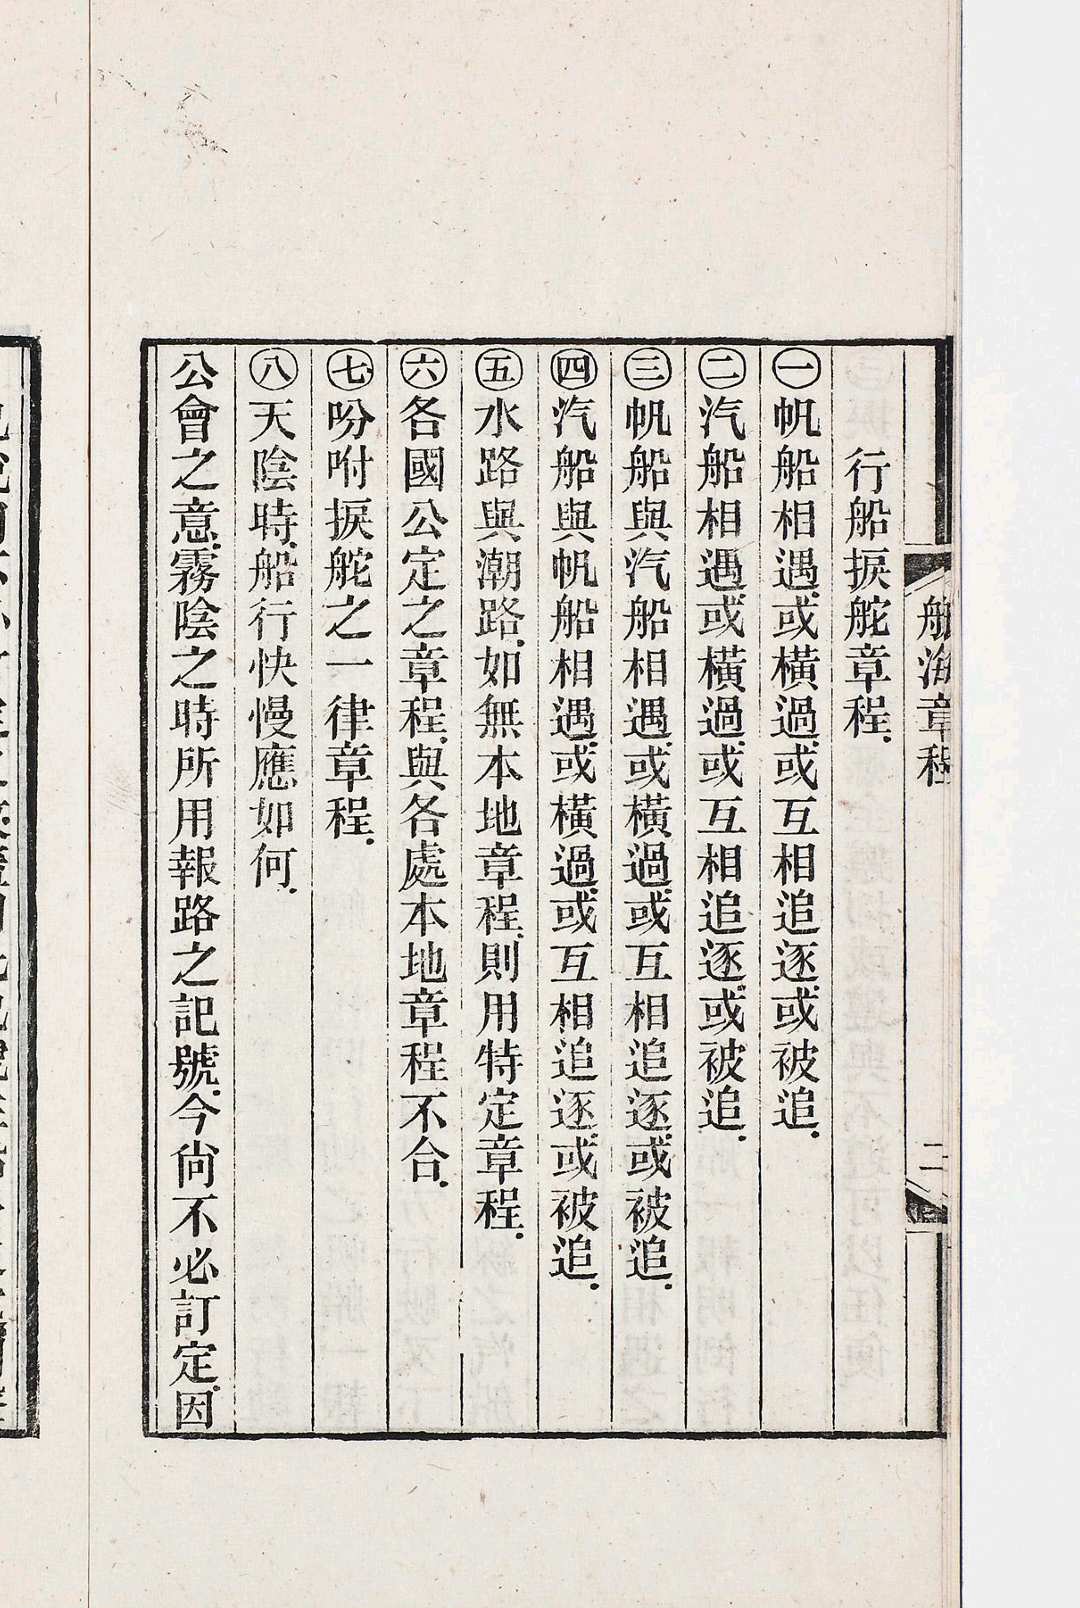 航海章程
二
行船捩舵章程.
㊀帆船相遇.或橫過.或互相追逐.或被追.
㊁汽船相遇.或橫過.或互相追逐.或被追.
㊂帆船與汽船相遇.或橫過.或互相追逐.或被追.
㊃汽船與帆船相遇.或橫過.或互相追逐.或被追.
㊄水路與潮路.如無本地章程.則用特定章程.
㊅各國公定之章程.與各處本地章程不合.
㊆吩咐捩舵之一律章程.
㊇天陰時.船行快慢應如何.
公會之意.霧陰之時所用報路之記號.今尙不必訂定.因